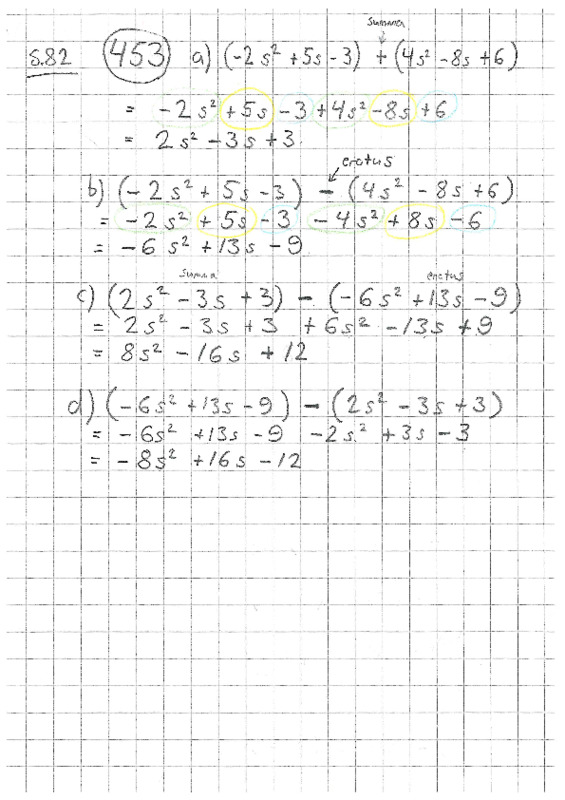 summa
s.82 453 a) (-2s² +5s -3) + (4s² -8s +6)
= -2s² +5s -3 +4s² -8s +6
= 2s² -3s +3
erotus
b) (-2s² + 5s -3) - (4s² - 8s +6)
= -2s² +5s -3 -4s² +8s -6
= -6s² +13s -9
summa erotus
c) (2s² -3s +3) - (-6s² +13s -9)
= 2s² -3s +3 +6s² -13s +9
= 8s² -16s +12
d) (-6s² +13s -9) - (2s² -3s +3)
= -6s² +13s -9 -2s² +3s -3
= -8s² +16s -12